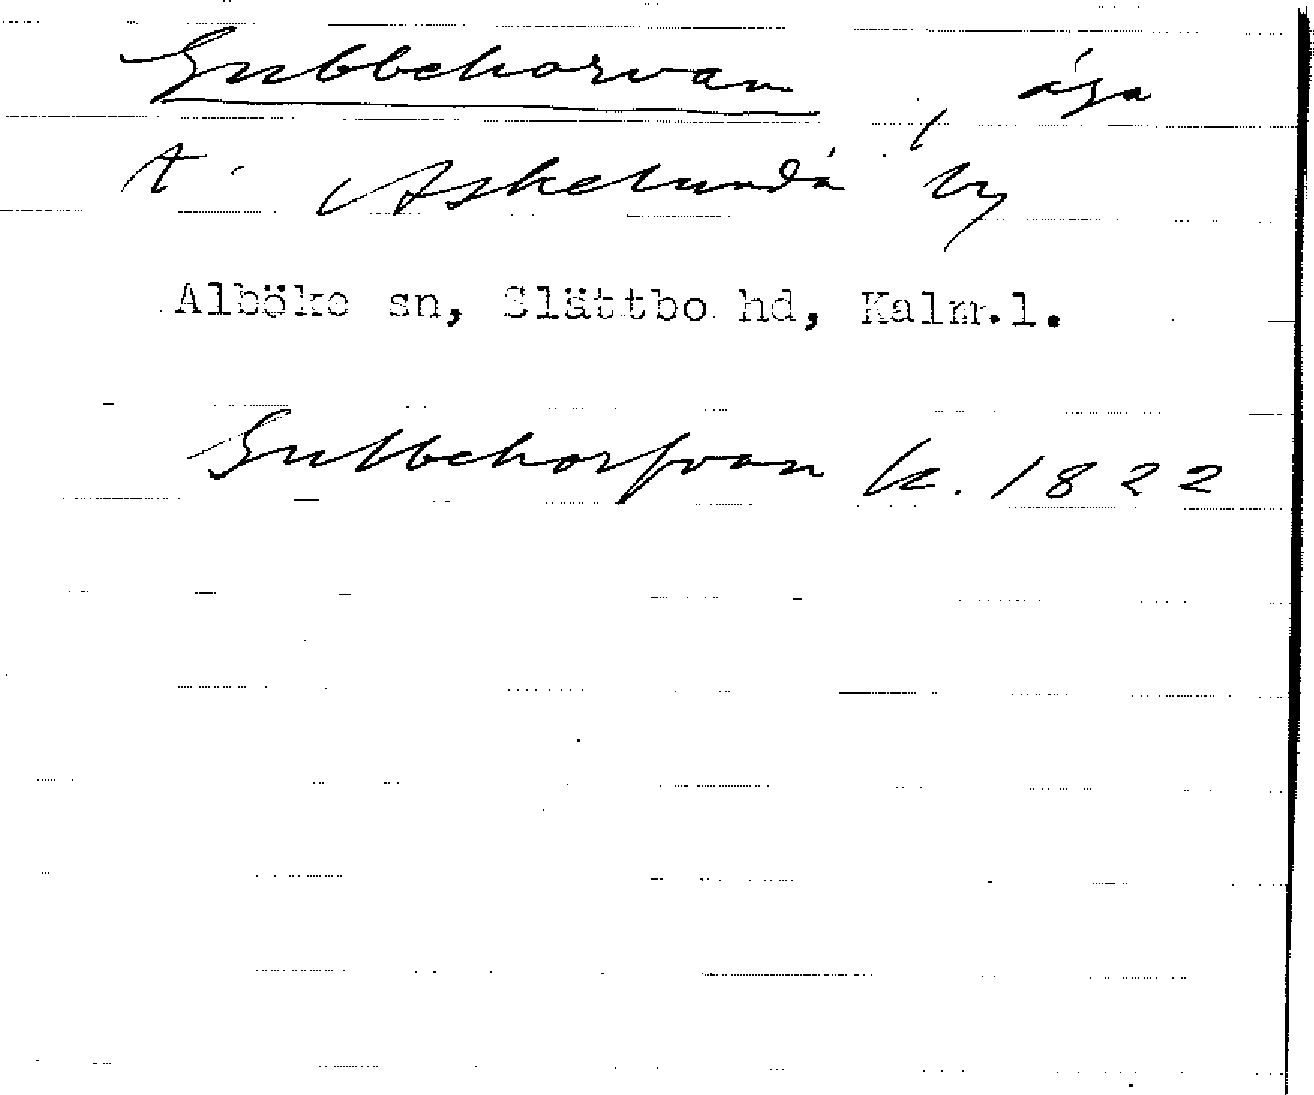 Gubbehorvan, äga
t. V Askelunda by
Alböke sn, Slättbo hd, Kalm.l.
Gubbehorfvan k. 1822